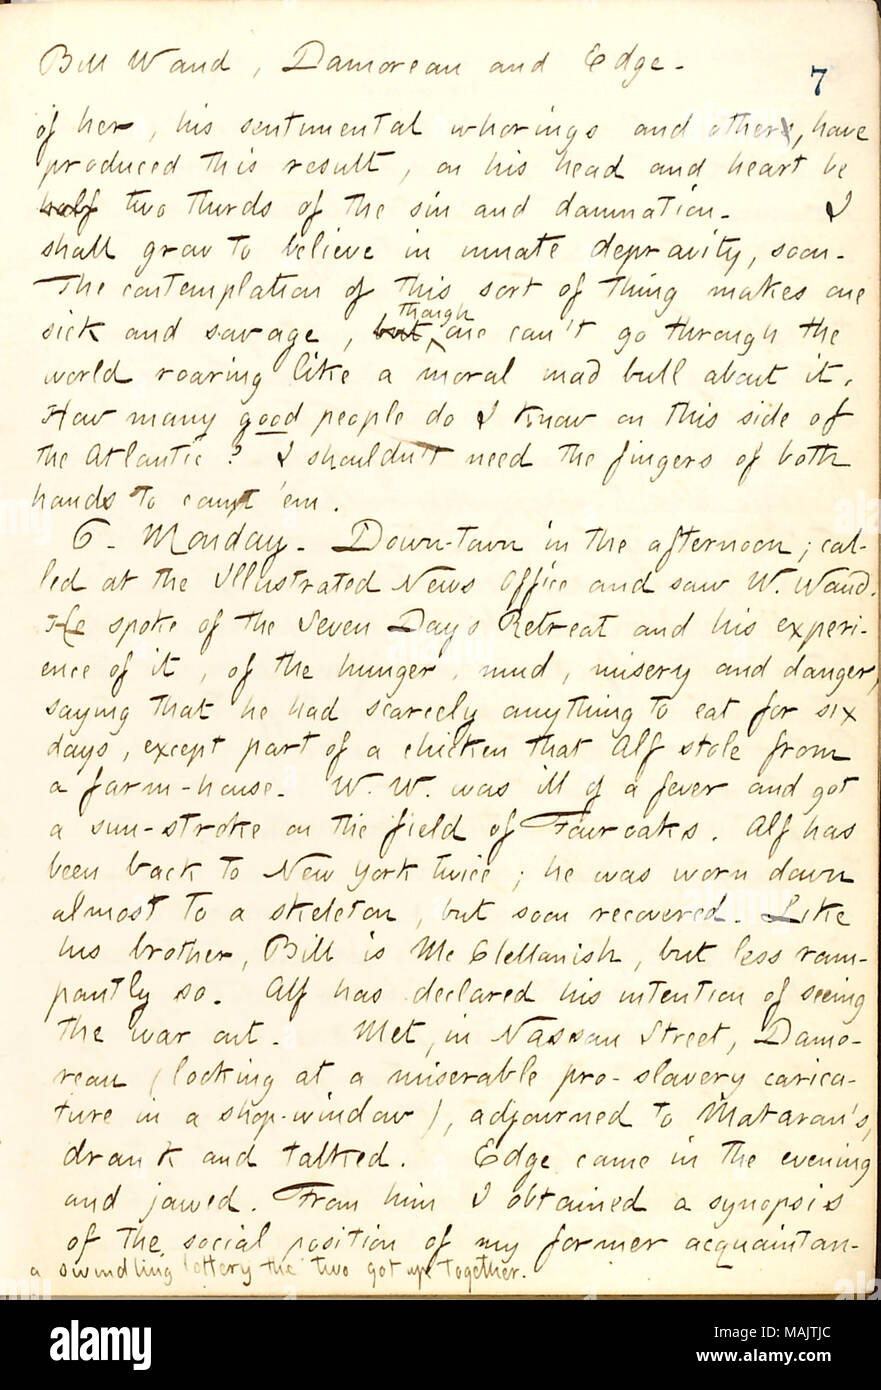 Bill Waud, Damoreau and Edge.
7
of her, his sentimental whorings and others, have
produced this result, on his head and heart be
half two thirds of the sin and damnation. I
shall grow to believe in innate depravity, soon.
The contemplation of this sort of thing makes one
sick and savage, but though one can't go through the
world roaring like a moral mad bull about it.
How many good people do I know on this side of
the Atlantic? I shouldn't need the fingers of both
hands to count 'em.
6. Monday. Down-town in the afternoon; cal-
led at the Illustrated News Office and saw W. Waud.
He spoke of the Seven Days Retreat and his experi-
ence of it, of the hunger, mud, misery and danger,
saying that he had scarcely anything to eat for six
days, except part of a chicken that Alf stole from
a farm-house. W. W. was ill of a fever and got
a sun-stroke on the field of Fair oaks. Alf has
been back to New York twice; he was worn down
almost to a skeleton, but soon recovered. Like
his brother, Bill is Mc Clellanish, but less ram-
pantly so. Alf has declared his intention of seeing
the war out. Met, in Nassau Street, Damo-
reau (looking at a miserable pro-slavery carica-
ture in a shop-window), adjourned to Mataran's,
drank and talked. Edge came in the evening
and jawed. From him I obtained a synopsis
of the social position of my former acquaintan-
a swindling lottery the two got up together.
alamy
Image ID: MAJTJC
www.alamy.com